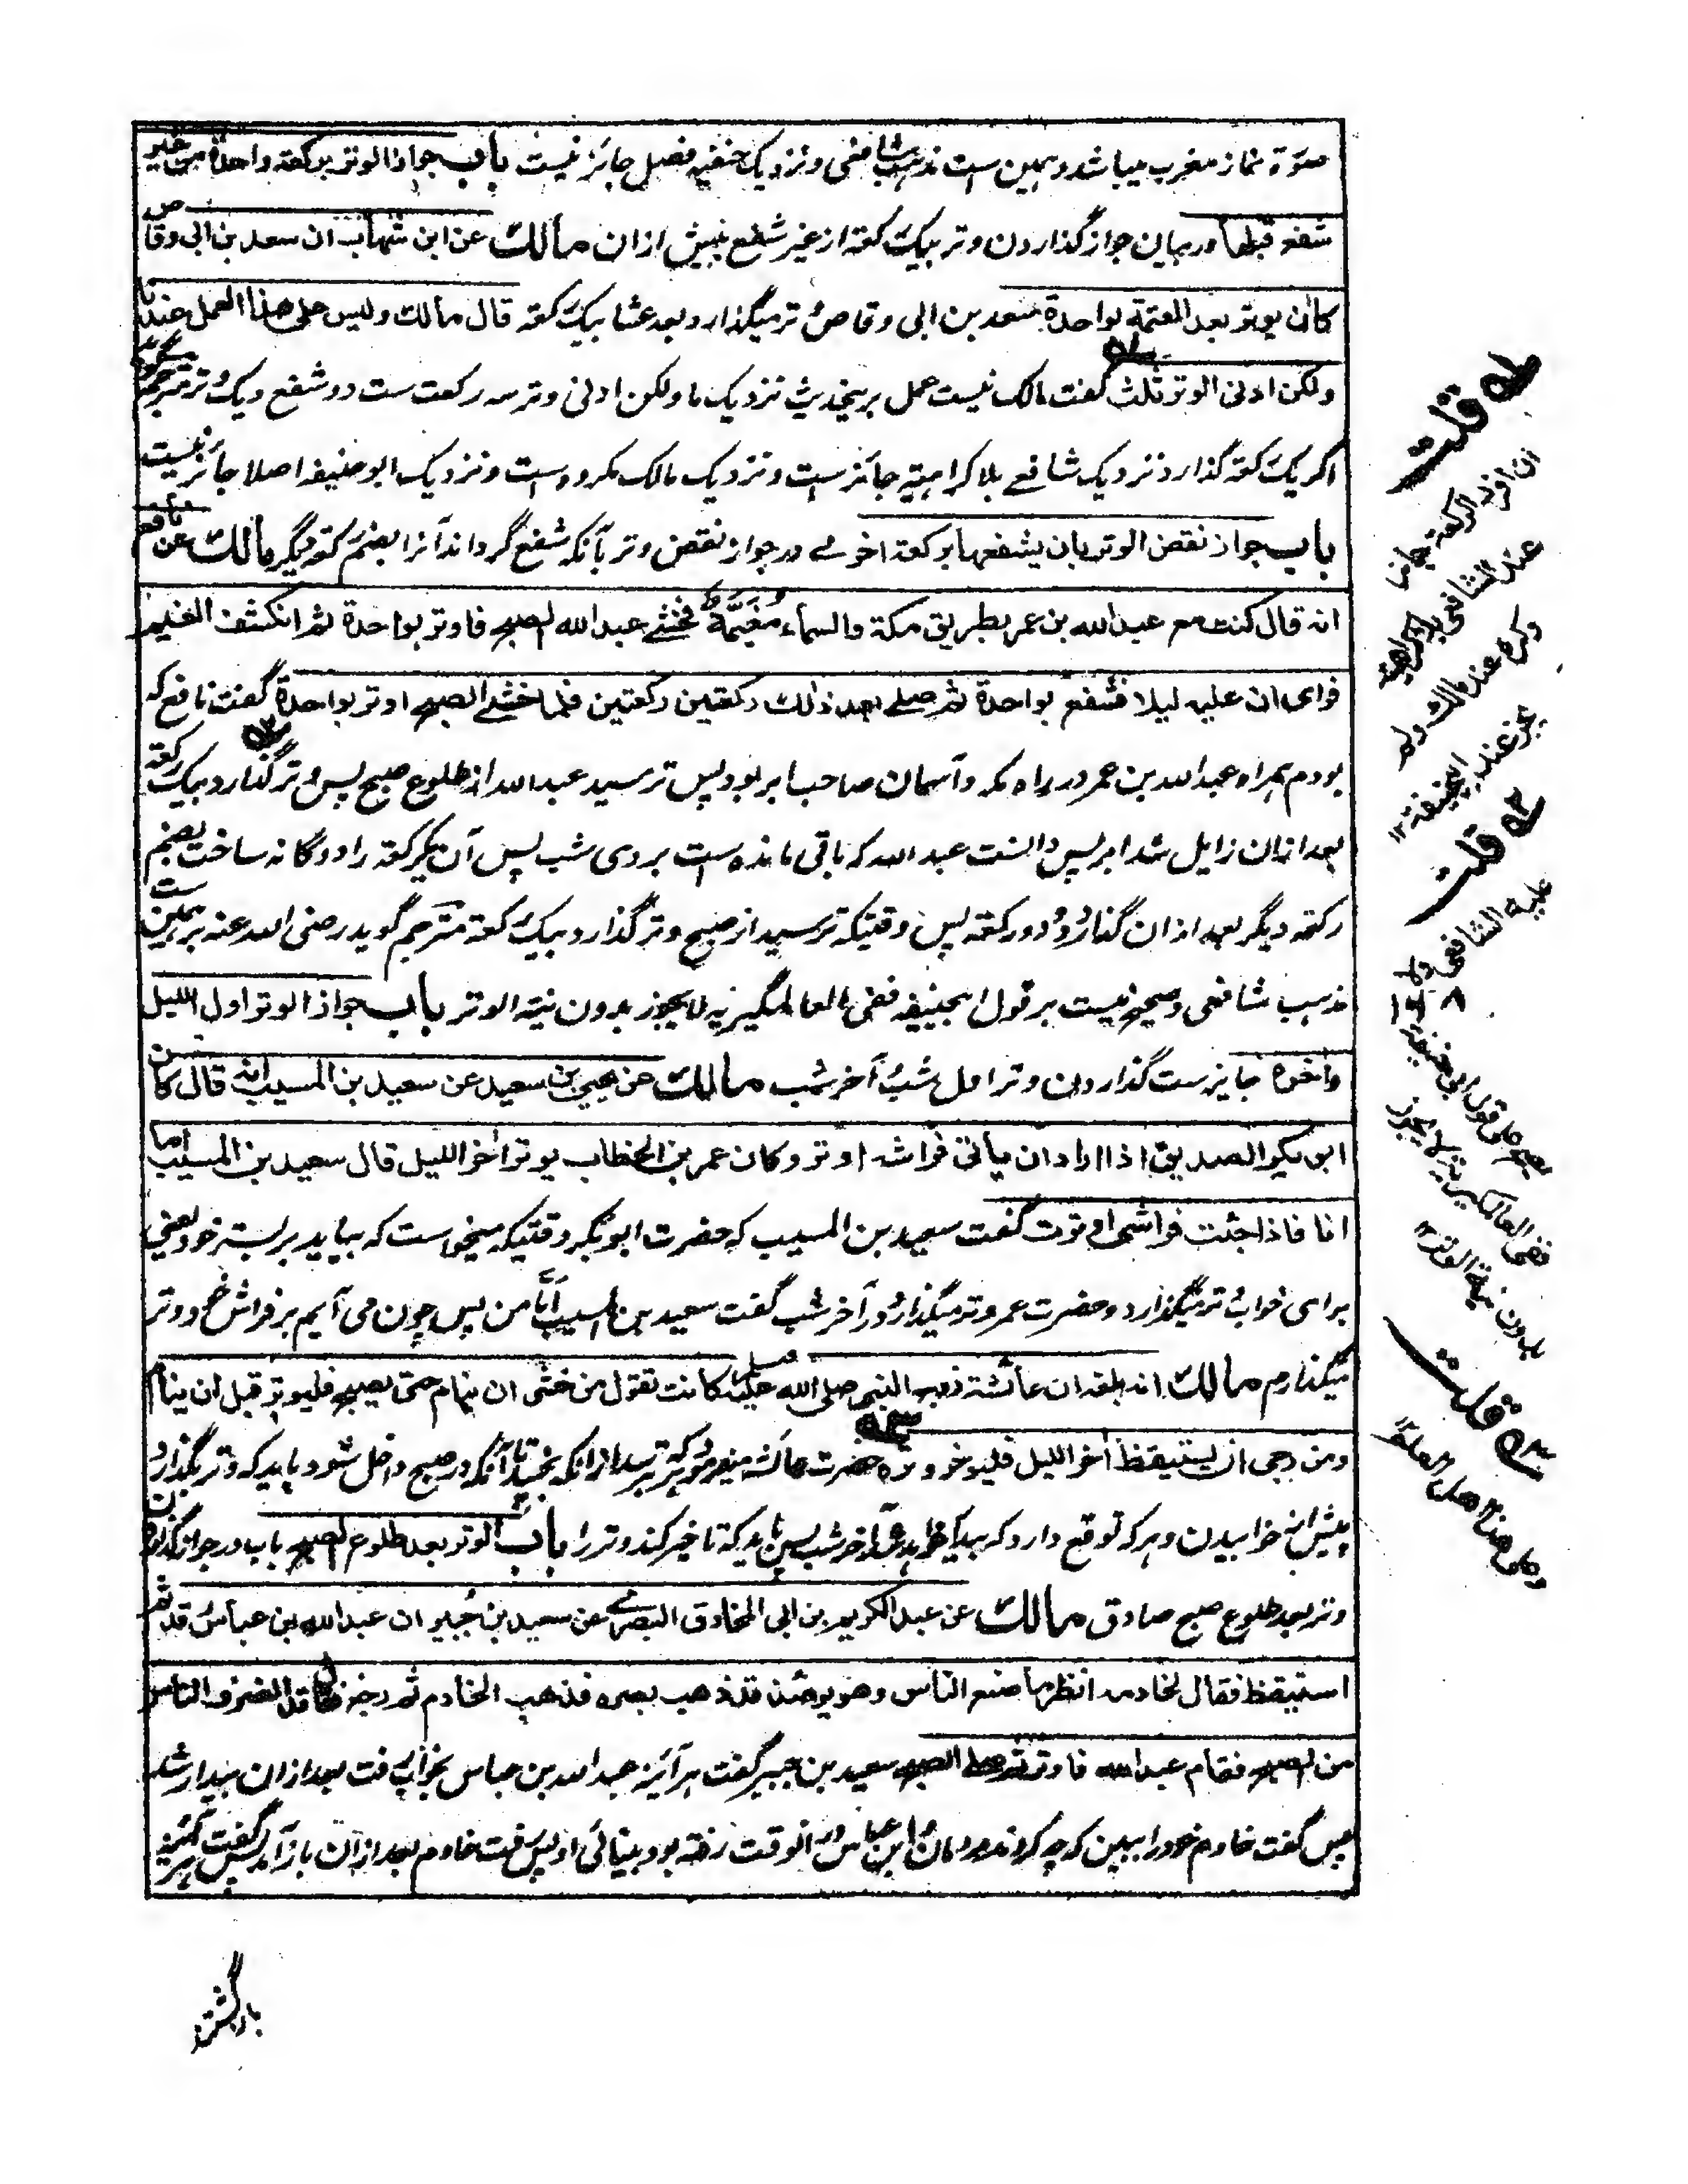 صوٓرة نماز مغرب میباشد و همین است مذهب شافعی و نزدیک حنفیه فصل جائز نیست باب جواز الوتر برکعة واحدة من غیر
شفع قبلها در بیان جواز گذاردن وتر بیک رکعة از غیر شفع پیش ازان مالك عن ابن شهاب ان سعد بن ابی وقاص
كان یوتر بعد العتمة بواحدة سعد بن ابی وقاص وتر میگذارد بعد عشا بیک رکعة قال مالك ولیس علی هذا العمل عندنا
ولكن ادنی الوتر ثلث گفت مالک نیست عمل برینحدیث نزدیک ما ولکن ادنی وتر سه رکعت ست دو شفع ویک وتر مترجم گوید
اگر یک رکعة گذارد نزدیک شافعے بلا کراهیة جائز ست و نزدیک مالک مکروه است و نزدیک ابو حنیفه اصلا جائز نیست
باب جواز نقض الوتر بان یشفعها برکعة اخرے در جواز نقض وتر بآنکه شفع گرداند آنرا بضم رکعة دیگر مالك عن نافع
انه قال كنت مع عبد الله بن عمر بطریق مكة والسماء مُغَیِّمَةٌ فخشے عبد الله الصبح فاوتر بواحدة ثم انكشف الغیم
فرای ان علیه لیلا فشفع بواحدة ثم صلے بعد ذلك ركعتین ركعتین فلما خشے الصبح اوتر بواحدة گفت نافع که
بودم همراه عبد الله بن عمر در راه مکه و آسمان صاحب ابر بود پس ترسید عبد الله از طلوع صبح پس وتر گذارد بیک رکعة
بعد ازان زایل شد ابر پس دانست عبد الله که باقی مانده است بر وی شب پس آن یکرکعة را دوگانه ساخت بضم
رکعة دیگر بعد ازان گذارد دو دو رکعة پس وقتیکه ترسید از صبح وتر گذارد بیک رکعة مترجم گوید رضی الله عنه برین ست
مذهب شافعی و صحیح نیست بر قول ابیحنیفه ففی العالمگیریه لا یجوز بدون نیة الوتر باب جواز الوتر اول اللیل
واخره جایز ست گذاردن وتر اول شب و آخر شب مالك عن یحیی بن سعید عن سعید بن المسیب انه قال كان
ابو بكر الصدیق اذا اراد ان یأتی فراشه اوتر وكان عمر بن الخطاب یوتر اخر اللیل قال سعید بن المسیب اما
انا فاذا جئت فراشی اوترت گفت سعید بن المسیب که حضرت ابوبکر وقتیکه میخواست که بیاید بر بستر خود یعنی
برای خواب وتر میگذارد و حضرت عمر وتر میگذارد در آخر شب گفت سعید بن المسیب امّا من پس چون می آیم بر فراش خود وتر
میگذارم مالك انه بلغه ان عائشة زوج النبی صلی الله علیه وسلم كانت تقول من خشی ان ینام حتی یصبح فلیوتر قبل ان ینام
ومن رجی ان یستیقظ اخر اللیل فلیوخر وتره حضرت عائشه میفرمود که هر که ترسد ازانکه بخسپد تا آنکه در صبح داخل شود باید که وتر بگذارد
پیش از خوابیدن و هر که توقع دارد که بیدار خواهد شد آخر شب پس باید که تاخیر کند وتر را باب الوتر بعد طلوع الصبح باب در جواز گذاردن
وتر بعد طلوع صبح صادق مالك عن عبد الكریم بن ابی المخارق البصرے عن سعید بن جُبیر ان عبد الله بن عباس رقد ثم
استیقظ فقال لخادمه انظر ما صنع الناس وهو یومئذ قد ذهب بصره فذهب الخادم ثم رجع فقال قد انصرف الناس
من الصبح فقام عبد الله فاوتر ثم صلے الصبح سعید بن جبیر گفت هر آئینه عبد الله بن عباس بخواب رفت بعد ازان بیدار شد
پس گفت خادم خود را ببین که چه کردند مردمان و ابن عباس در انوقت رفته بود بینائی او پس رفت خادم بعد ازان باز آمد پس گفت هر آئینه
بازگشتند
ف۱ قلت
ان افرد الركعة جاز
عند الشافعی بلا كراهیة
وكره عند مالك ولم
یجز عند ابیحنیفة ۱۲
ف۲ قلت
علیه الشافعی ولا
یصح علی قول ابی حنیفة
ففی العالمگیریة لا یجوز
بدون نیة الوتر ۱۲
ف۳ قلت
وعلی هذا اهل العلم ۱۲